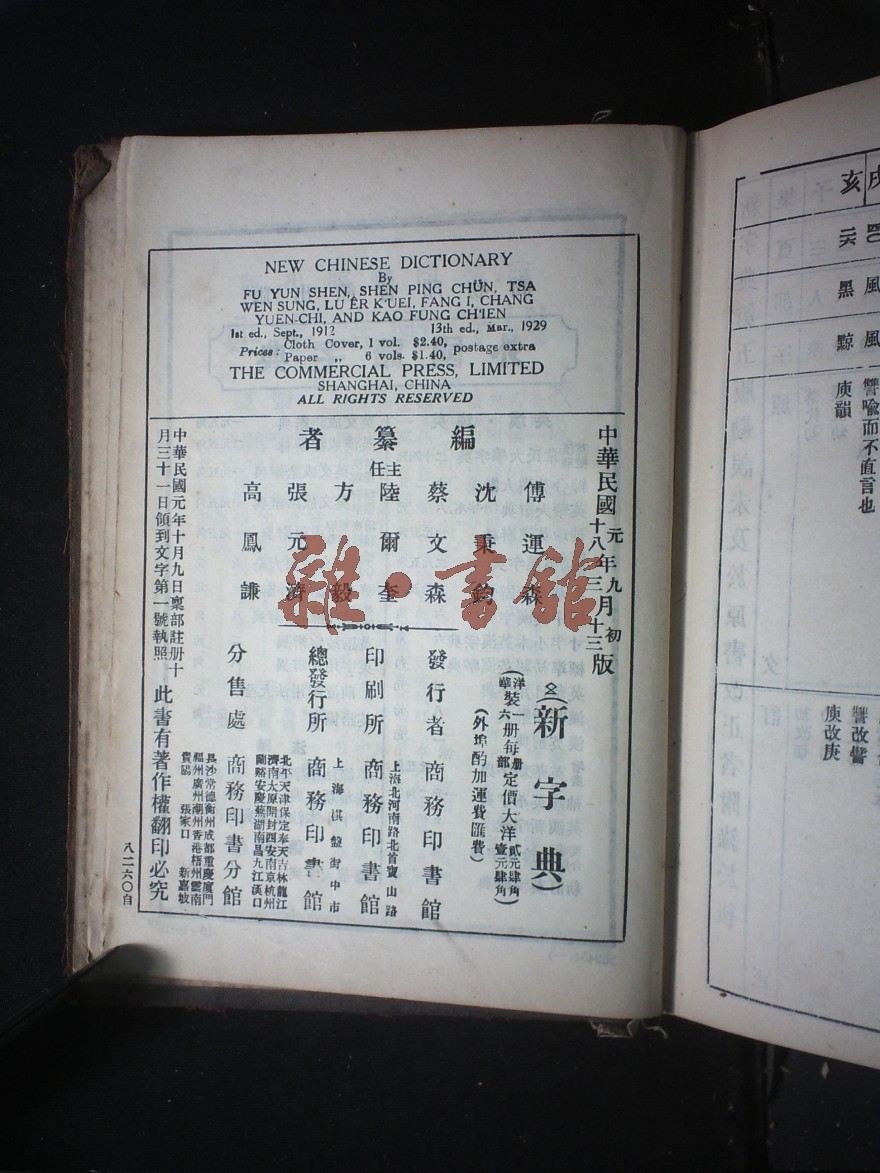 NEW CHINESE DICTIONARY
By
FU YUN SHEN, SHEN PING CHÜN, TSA
WEN SUNG, LU ÊR K'UEI, FANG I, CHANG
YUEN-CHI, AND KAO FUNG CH'IEN
1st ed., Sept., 1912 13th ed., Mar., 1929
Prices: Cloth Cover, 1 vol. $2.40,
Paper „ 6 vols. $1.40, postage extra
THE COMMERCIAL PRESS, LIMITED
SHANGHAI, CHINA
ALL RIGHTS RESERVED
中華民國元年九月初版
十八年三月十三版
(新字典)
(洋裝一册每册定價大洋貳元肆角
華裝六册每部定價大洋壹元肆角)
(外埠酌加運費匯費)
編纂者
傅運森
沈秉鈞
蔡文森
主任
陸爾奎
方毅
張元濟
高鳳謙
發行者 商務印書館
上海北河南路北首寶山路
印刷所 商務印書館
上海棋盤街中市
總發行所 商務印書館
北平天津保定奉天吉林龍江
濟南太原開封西安南京杭州
蘭谿安慶蕪湖南昌九江漢口
分售處 商務印書分館
長沙常德衡州成都重慶廈門
福州廣州潮州香港梧州雲南
貴陽 張家口 新嘉坡
中華民國元年十月九日稟部註册十
月三十一日領到文字第一號執照
此書有著作權翻印必究
八二六〇自
雜·書館
戌
亥
風
黑
風
黥
譬喻而不直言也
庾韻
譬改譬
庾改庚